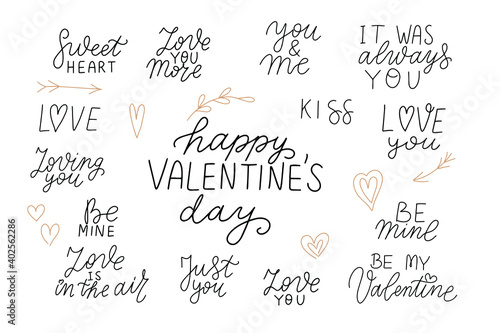 Sweet
HEART
Love
YOU
More
you
&
me
IT WAS
always
YOU
LOVE
KISS
LOVE
you
Loving
you
happy
VALENTINE'S
day
Be
MINE
BE
mine
Love
IS
in the air
Just
you
Love
YOU
BE MY
Valentine
Adobe Stock | #402562286